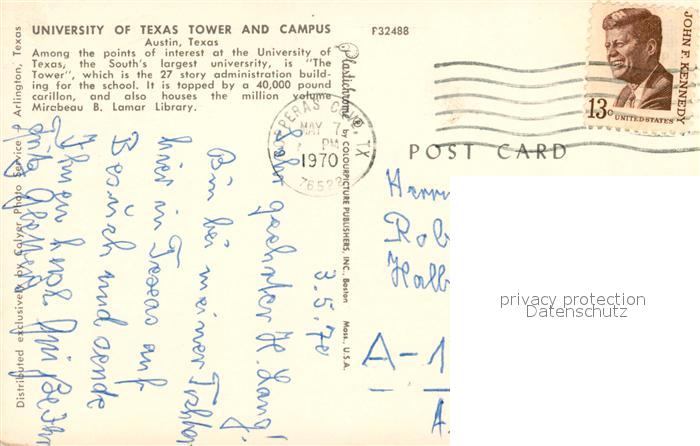 UNIVERSITY OF TEXAS TOWER AND CAMPUS
Austin, Texas
Among the points of interest at the University of
Texas, the South's largest university, is "The
Tower", which is the 27 story administration build-
ing for the school. It is topped by a 40,000 pound
carillon, and also houses the million volume
Mirabeau B. Lamar Library.
P32488
Distributed exclusively by Colyer Photo Service • Arlington, Texas
Plastichrome by COLOURPICTURE PUBLISHERS, INC., Boston Mass., U.S.A.
COPPERAS COVE, TX
MAY 7
PM
1970
76522
JOHN F. KENNEDY
13c
UNITED STATES
POST CARD
3.5.70
Sehr geehrter H. Lang!
Bin bei meiner Tochter
hier in Texas auf
Besuch und sende
Ihnen
Herrn
Rob
Halb
A-1
A.
privacy protection
Datenschutz